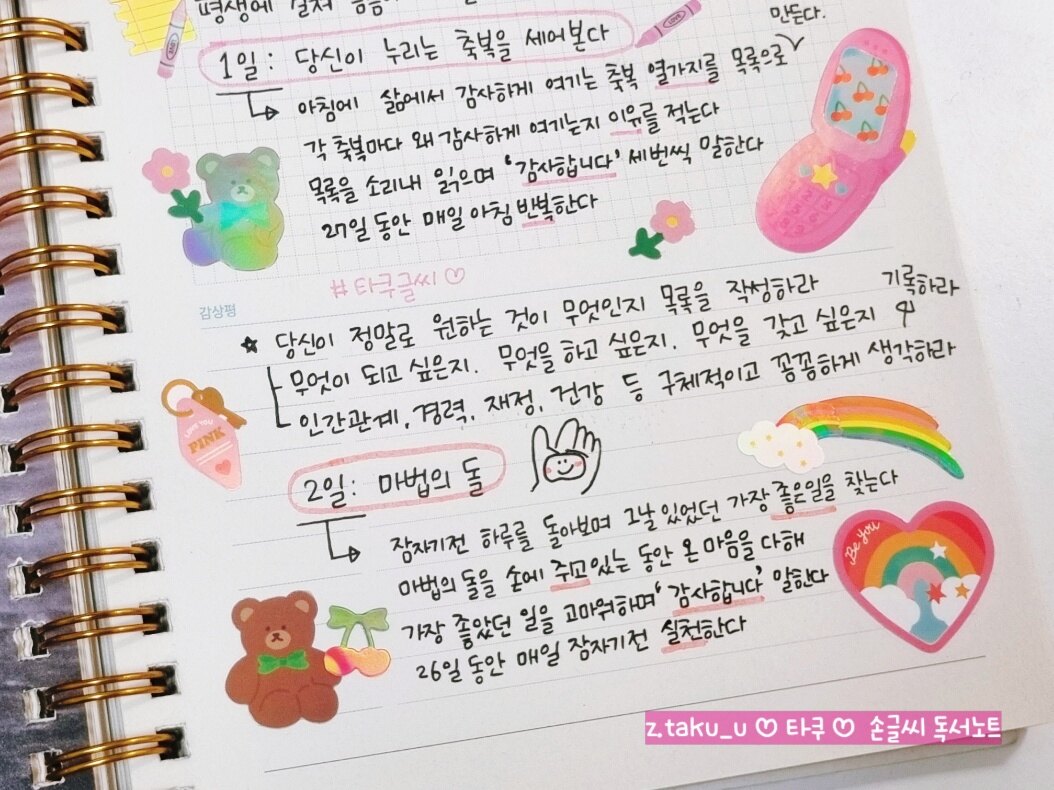 평생에 걸쳐
만든다.
1일: 당신이 누리는 축복을 세어본다
아침에 삶에서 감사하게 여기는 축복 열가지를 목록으로
각 축복마다 왜 감사하게 여기는지 이유를 적는다
목록을 소리내 읽으며 '감사합니다' 세번씩 말한다
27일 동안 매일 아침 반복한다
#타쿠글씨♡
감상평
☆ 당신이 정말로 원하는 것이 무엇인지 목록을 작성하라
기록하라
무엇이 되고 싶은지. 무엇을 하고 싶은지. 무엇을 갖고 싶은지
인간관계, 경력, 재정, 건강 등 구체적이고 꼼꼼하게 생각하라
LOVE YOU
PINK
2일: 마법의 돌
잠자기전 하루를 돌아보며 그날 있었던 가장 좋은일을 찾는다
마법의 돌을 손에 주고 있는 동안 온 마음을 다해
가장 좋았던 일을 고마워하며 '감사합니다' 말한다
26일 동안 매일 잠자기전 실천한다
Be you
z.taku_u ♡ 타쿠 ♡ 손글씨 독서노트